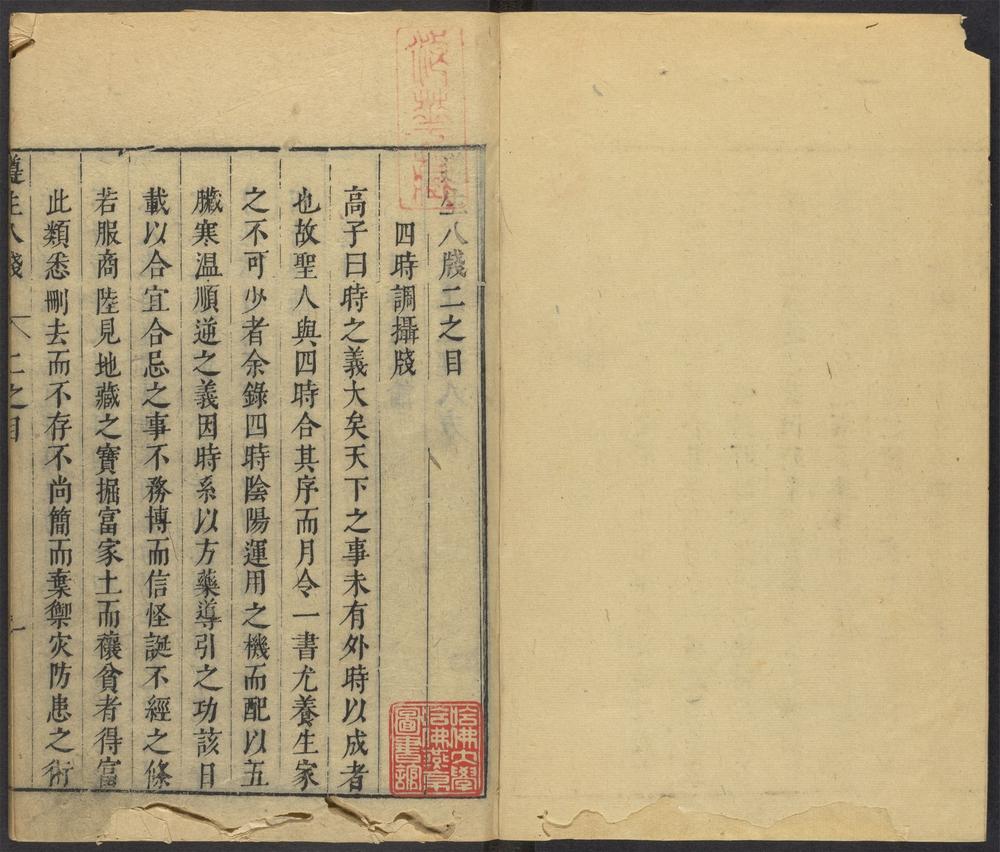 生八牋二之目
四時調攝牋
高子曰時之義大矣天下之事未有外時以成者
也故聖人與四時合其序而月令一書尤養生家
之不可少者余錄四時陰陽運用之機而配以五
臟寒温順逆之義因時系以方藥導引之功該日
載以合宜合忌之事不務博而信怪誕不經之條
若服商陸見地藏之寶掘富家土而禳貧者得富
此類悉刪去而不存不尚簡而棄禦灾防患之術
遵生八牋 二之目 一
哈佛大學
哈佛燕京
圖書館